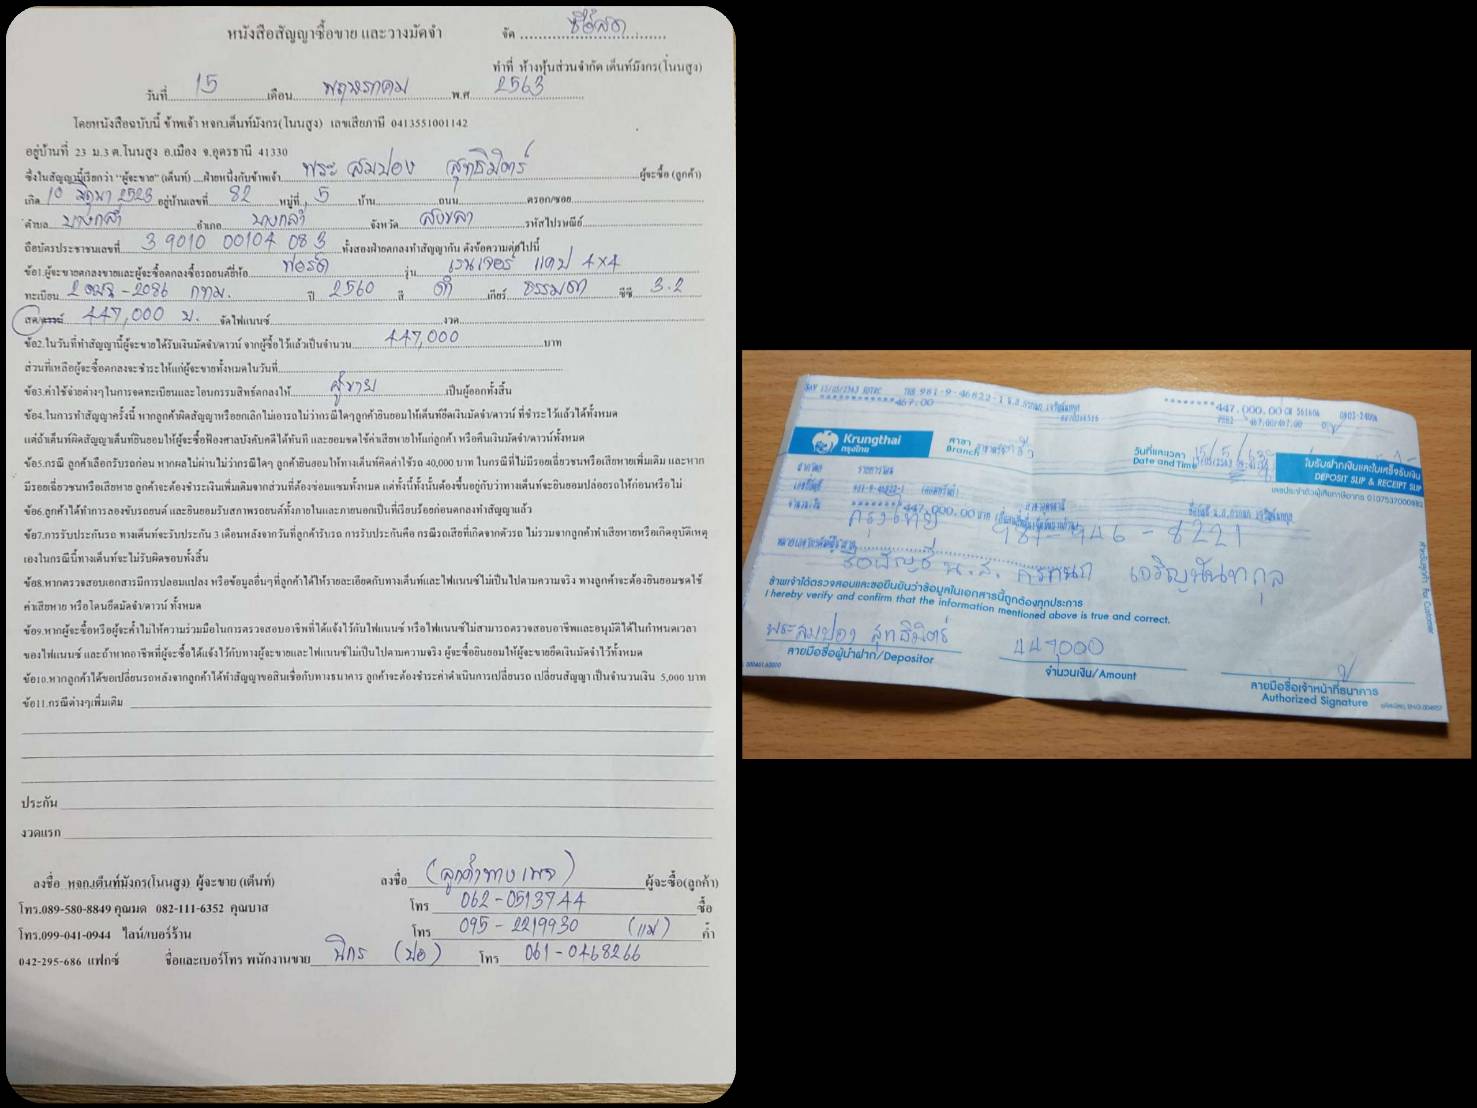 หนังสือสัญญาซื้อขาย และวางมัดจำ
จัด ซื้อสด
ทำที่ ห้างหุ้นส่วนจำกัด เต็นท์มังกร(โนนสูง)
วันที่ 15 เดือน พฤษภาคม พ.ศ 2563
โดยหนังสือฉบับนี้ ข้าพเจ้า หจก.เต็นท์มังกร(โนนสูง) เลขเสียภาษี 0413551001142
อยู่บ้านที่ 23 ม.3 ต.โนนสูง อ.เมือง จ.อุดรธานี 41330
ซึ่งในสัญญานี้เรียกว่า "ผู้จะขาย" (เต็นท์) ....ฝ่ายหนึ่งกับข้าพเจ้า พระ สมปอง สุทธิมิตร์ ผู้จะซื้อ (ลูกค้า)
เกิด 10 มิถุนา 2523 อยู่บ้านเลขที่ 82 หมู่ที่ 5 บ้าน ถนน ตรอก/ซอย
ตำบล บางกล่ำ อำเภอ บางกล่ำ จังหวัด สงขลา รหัสไปรษณีย์
ถือบัตรประชาชนเลขที่ 3 9010 00104 08 3 ทั้งสองฝ่ายตกลงทำสัญญากัน ดังข้อความต่อไปนี้
ข้อ1.ผู้จะขายตกลงขายและผู้จะซื้อตกลงซื้อรถยนต์ยี่ห้อ ฟอร์ด รุ่น เรนเจอร์ แคป 4x4
ทะเบียน 2086 กทม. ปี 2560 สี ดำ เกียร์ ธรรมดา ซีซี 3.2
สด/ดาวน์ 447,000 บ. จัดไฟแนนซ์ งวด
ข้อ2.ในวันที่ทำสัญญานี้ผู้จะขายได้รับเงินมัดจำ/ดาวน์ จากผู้ซื้อไว้แล้วเป็นจำนวน 447,000 บาท
ส่วนที่เหลือผู้จะซื้อตกลงจะชำระให้แก่ผู้จะขายทั้งหมดในวันที่
ข้อ3.ค่าใช้จ่ายต่างๆในการจดทะเบียนและโอนกรรมสิทธิ์ตกลงให้ ผู้ขาย เป็นผู้ออกทั้งสิ้น
ข้อ4.ในการทำสัญญาครั้งนี้ หากลูกค้าผิดสัญญาหรือยกเลิกไม่เอารถไม่ว่ากรณีใดๆลูกค้ายินยอมให้เต็นท์ยึดเงินมัดจำ/ดาวน์ ที่ชำระไว้แล้วได้ทั้งหมด
แต่ถ้าเต็นท์ผิดสัญญาเต็นท์ยินยอมให้ผู้จะซื้อฟ้องศาลบังคับคดีได้ทันที และยอมชดใช้ค่าเสียหายให้แก่ลูกค้า หรือคืนเงินมัดจำ/ดาวน์ทั้งหมด
ข้อ5.กรณี ลูกค้าเลือกรับรถก่อน หากผลไม่ผ่านไม่ว่ากรณีใดๆ ลูกค้ายินยอมให้ทางเต็นท์คิดค่าใช้รถ 40,000 บาท ในกรณีที่ไม่มีรอยเฉี่ยวชนหรือเสียหายเพิ่มเติม และหาก
มีรอยเฉี่ยวชนหรือเสียหาย ลูกค้าจะต้องชำระเงินเพิ่มเติมจากส่วนที่ต้องซ่อมแซมทั้งหมด แต่ทั้งนี้ทั้งนั้นต้องขึ้นอยู่กับว่าทางเต็นท์จะยินยอมปล่อยรถให้ก่อนหรือไม่
ข้อ6.ลูกค้าได้ทำการลองขับรถยนต์ และยินยอมรับสภาพรถยนต์ทั้งภายในและภายนอกเป็นที่เรียบร้อยก่อนตกลงทำสัญญาแล้ว
ข้อ7.การรับประกันรถ ทางเต็นท์จะรับประกัน 3 เดือนหลังจากวันที่ลูกค้ารับรถ การรับประกันคือ กรณีรถเสียที่เกิดจากตัวรถ ไม่รวมจากลูกค้าทำเสียหายหรือเกิดอุบัติเหตุ
เองในกรณีนี้ทางเต็นท์จะไม่รับผิดชอบทั้งสิ้น
ข้อ8.หากตรวจสอบเอกสารมีการปลอมแปลง หรือข้อมูลอื่นๆที่ลูกค้าได้ให้รายละเอียดกับทางเต็นท์และไฟแนนซ์ไม่เป็นไปตามความจริง ทางลูกค้าจะต้องยินยอมชดใช้
ค่าเสียหาย หรือโดนยึดมัดจำ/ดาวน์ ทั้งหมด
ข้อ9.หากผู้จะซื้อหรือผู้จะค้ำไม่ให้ความร่วมมือในการตรวจสอบอาชีพที่ได้แจ้งไว้กับไฟแนนซ์ หรือไฟแนนซ์ไม่สามารถตรวจสอบอาชีพและอนุมัติได้ในกำหนดเวลา
ของไฟแนนซ์ และถ้าหากอาชีพที่ผู้จะซื้อได้แจ้งไว้กับทางผู้จะขายและไฟแนนซ์ไม่เป็นไปตามความจริง ผู้จะซื้อยินยอมให้ผู้จะขายยึดเงินมัดจำไว้ทั้งหมด
ข้อ10.หากลูกค้าได้ขอเปลี่ยนรถหลังจากลูกค้าได้ทำสัญญาขอสินเชื่อกับทางธนาคาร ลูกค้าจะต้องชำระค่าดำเนินการเปลี่ยนรถ เปลี่ยนสัญญา เป็นจำนวนเงิน 5,000 บาท
ข้อ11.กรณีต่างๆเพิ่มเติม
ประกัน
งวดแรก
ลงชื่อ หจก.เต็นท์มังกร(โนนสูง) ผู้จะขาย (เต็นท์) ลงชื่อ (ลูกค้าทางเพจ) ผู้จะซื้อ(ลูกค้า)
โทร.089-580-8849 คุณมด 082-111-6352 คุณบาส โทร 062-0513744 ซื้อ
โทร.099-041-0944 ไลน์/เบอร์ร้าน โทร 095-2219930 (แม่) ค้ำ
042-295-686 แฟกซ์ ชื่อและเบอร์โทร พนักงานขาย นิกร (ปอ) โทร 061-0468266
SAV 15/05/2563 TXN 981-9-46822-1 น.ส.
467.00 447,000.00
Krungthai
กรุงไทย
สาขา
Branch
วันที่และเวลา 15/5/63
Date and Time
ใบรับฝากเงินและใบเสร็จรับเงิน
DEPOSIT SLIP & RECEIPT SLIP
เลขประจำตัวผู้เสียภาษีอากร 0107537000882
447,000.00 บาท
กรุงไทย 981-946-8221
ชื่อบัญชี น.ส. เจริญนันทกุล
ข้าพเจ้าได้ตรวจสอบและขอยืนยันว่าข้อมูลในเอกสารนี้ถูกต้องทุกประการ
I hereby verify and confirm that the information mentioned above is true and correct.
พระสมปอง สุทธิมิตร์ 447000
ลายมือชื่อผู้นำฝาก/Depositor
จำนวนเงิน/Amount
ลายมือชื่อเจ้าหน้าที่ธนาคาร
Authorized Signature
สำหรับลูกค้า For Customer